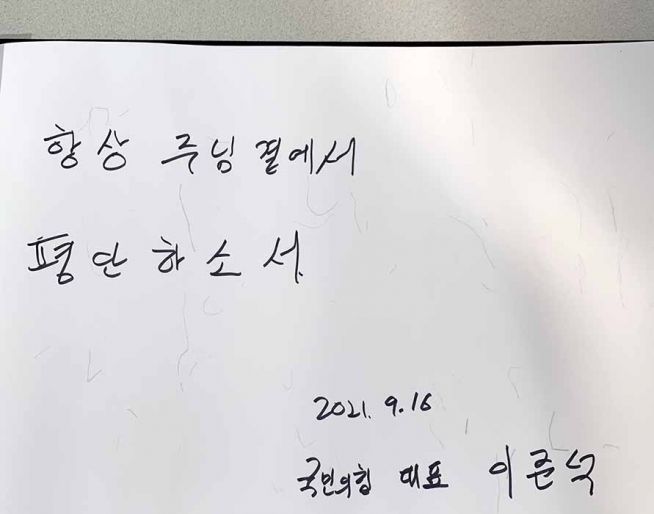 항상 주님 곁에서
평안하소서
2021. 9.16
국민의힘 대표 이준석